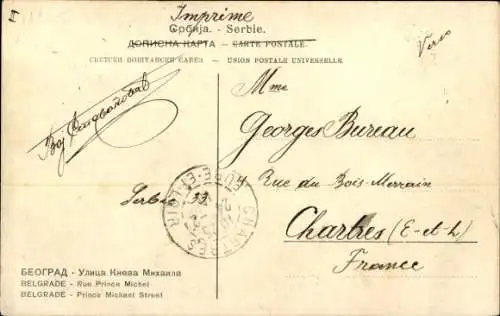 Imprime
Србија. - Serbie.
ДОПИСНА КАРТА - CARTE POSTALE
СВЕТСКИ ПОШТАНСКИ САВЕЗ - UNION POSTALE UNIVERSELLE
Mme
Georges Bureau
4 Rue du Bois-Merrain
Chartres (E-et-L)
France
Serbie 33
CHARTRES
EURE-ET-LOIR
БЕОГРАД - Улица Кнеза Михаила
BELGRADE - Rue Prince Michel
BELGRADE - Prince Michael Street